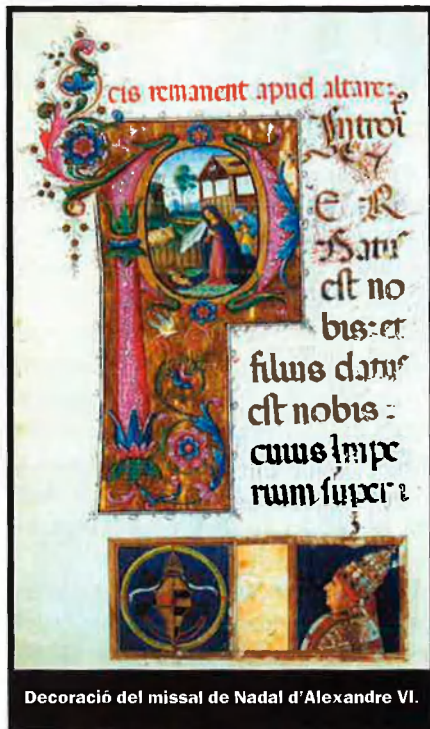 cis remanent apud altare:
Introi
P
E R
Natus
est no
bis: et
filius datus
est nobis :
cuius Impe
rium super
Decoració del missal de Nadal d'Alexandre VI.